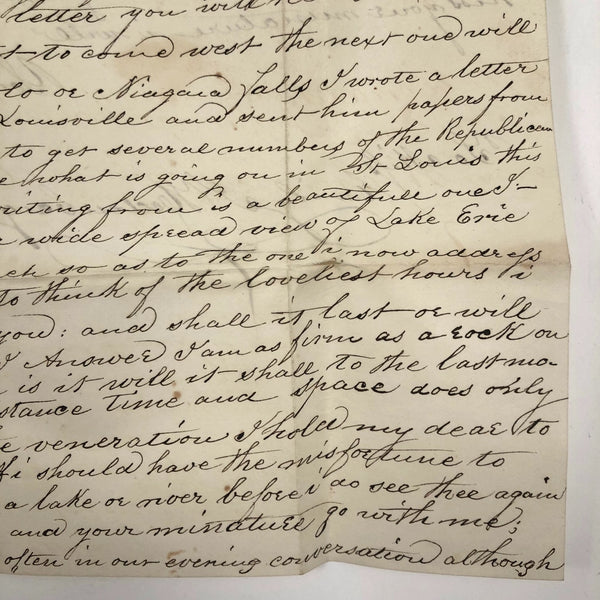 letter you will
t to come west the next one will
lo or Niagara falls I wrote a letter
Louisville and sent him papers from
to get several numbers of the Republican
e what is going on in St Louis this
writing from is a beautifull one I
wide spread view of Lake Erie
ch so as to the one i now address
to think of the loveliest hours i
you: and shall it last or will
I Answer I am as firm as a rock on
is it will it shall to the last mo-
stance time and space does only
e veneration I hold my dear to
if i should have the misfortune to
a lake or river before i do see thee again
and your minature go with me;
often in our evening conversation although